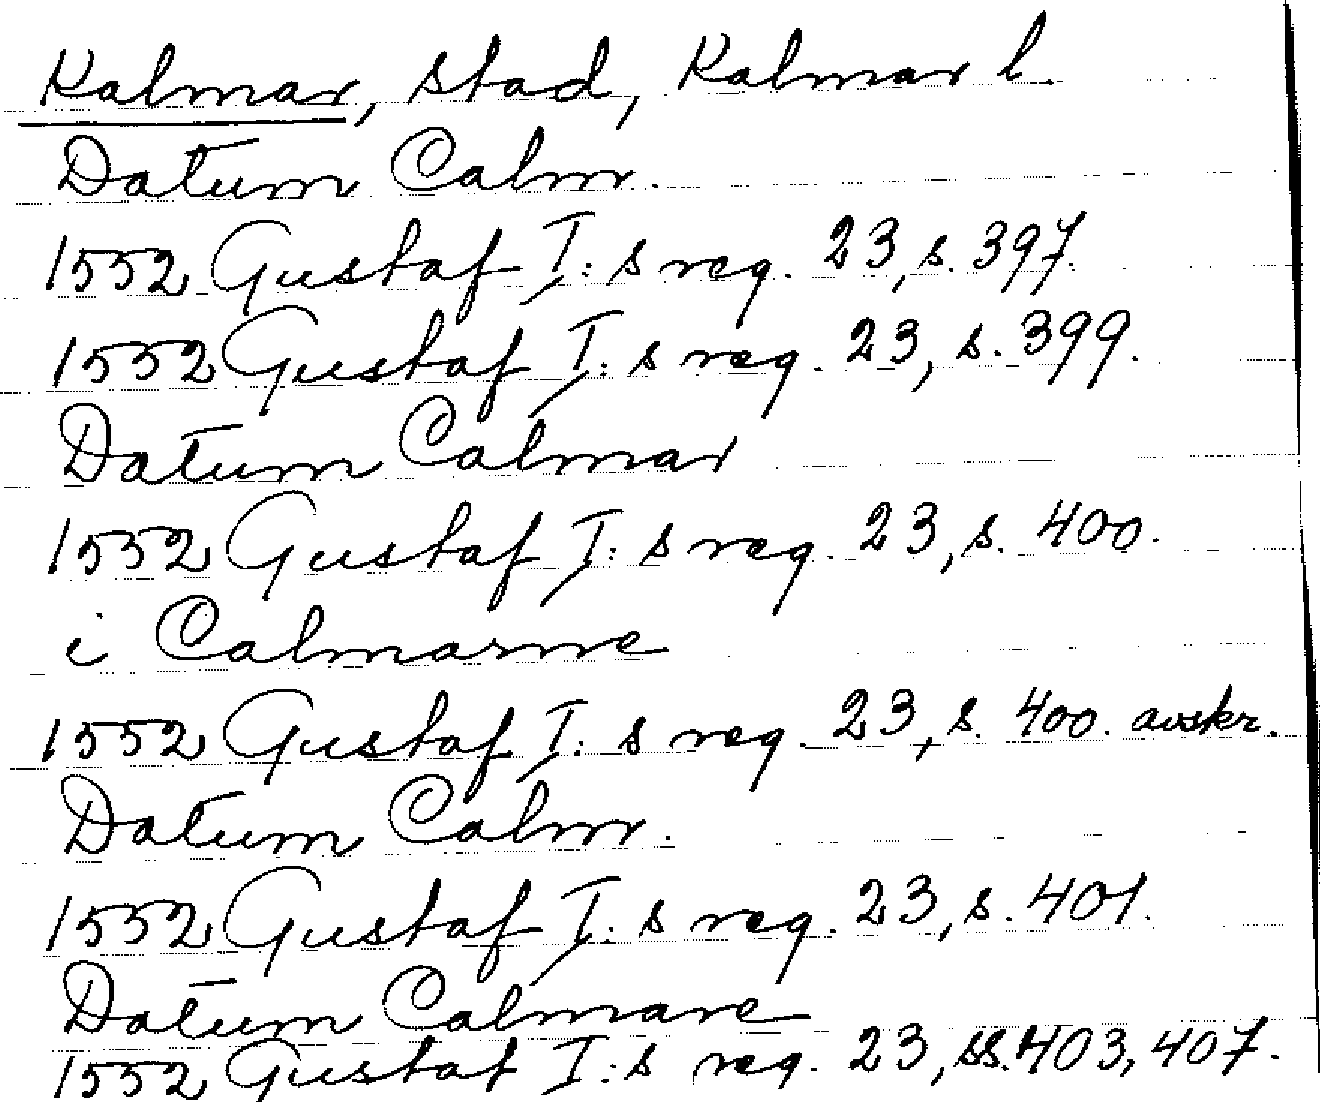 Kalmar, stad, Kalmar l.
Datum Calm.
1552 Gustaf I:s reg. 23, s. 397.
1552 Gustaf I:s reg. 23, s. 399.
Datum Calmar
1552 Gustaf I:s reg. 23, s. 400.
i Calmarne
1552 Gustaf I:s reg. 23, s. 400. avskr.
Datum Calm.
1552 Gustaf I:s reg. 23, s. 401.
Datum Calmare
1552 Gustaf I:s reg. 23, ss. 403, 407.